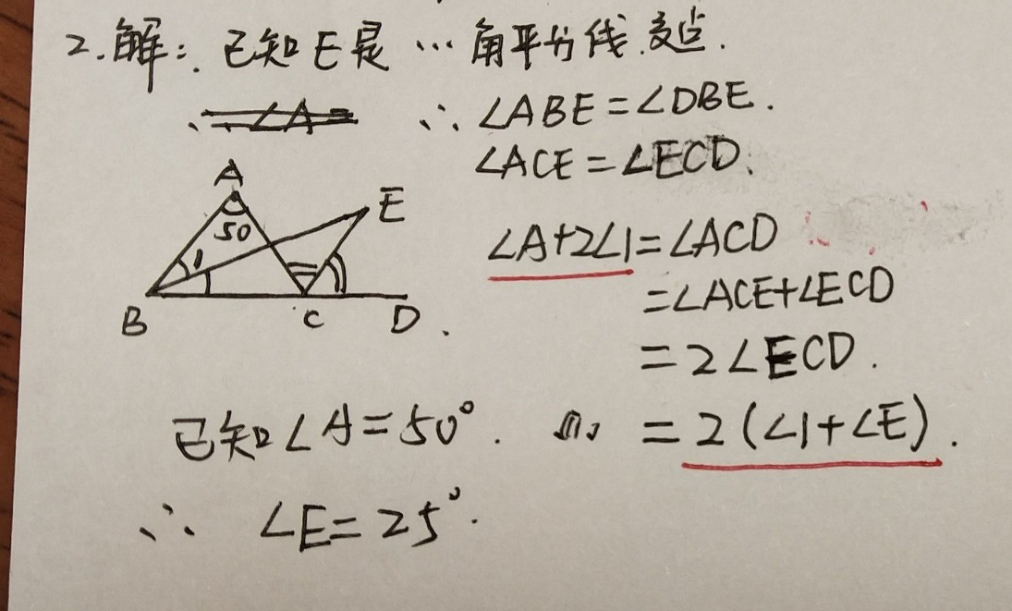 2.解:∵已知E是…角平分线交点.
∴∠ABE=∠DBE.
∠ACE=∠ECD.
A
50
E
1
B
C
D
∠A+2∠1=∠ACD
=∠ACE+∠ECD
=2∠ECD.
=2(∠1+∠E).
已知∠A=50°.
∴ ∠E=25°.